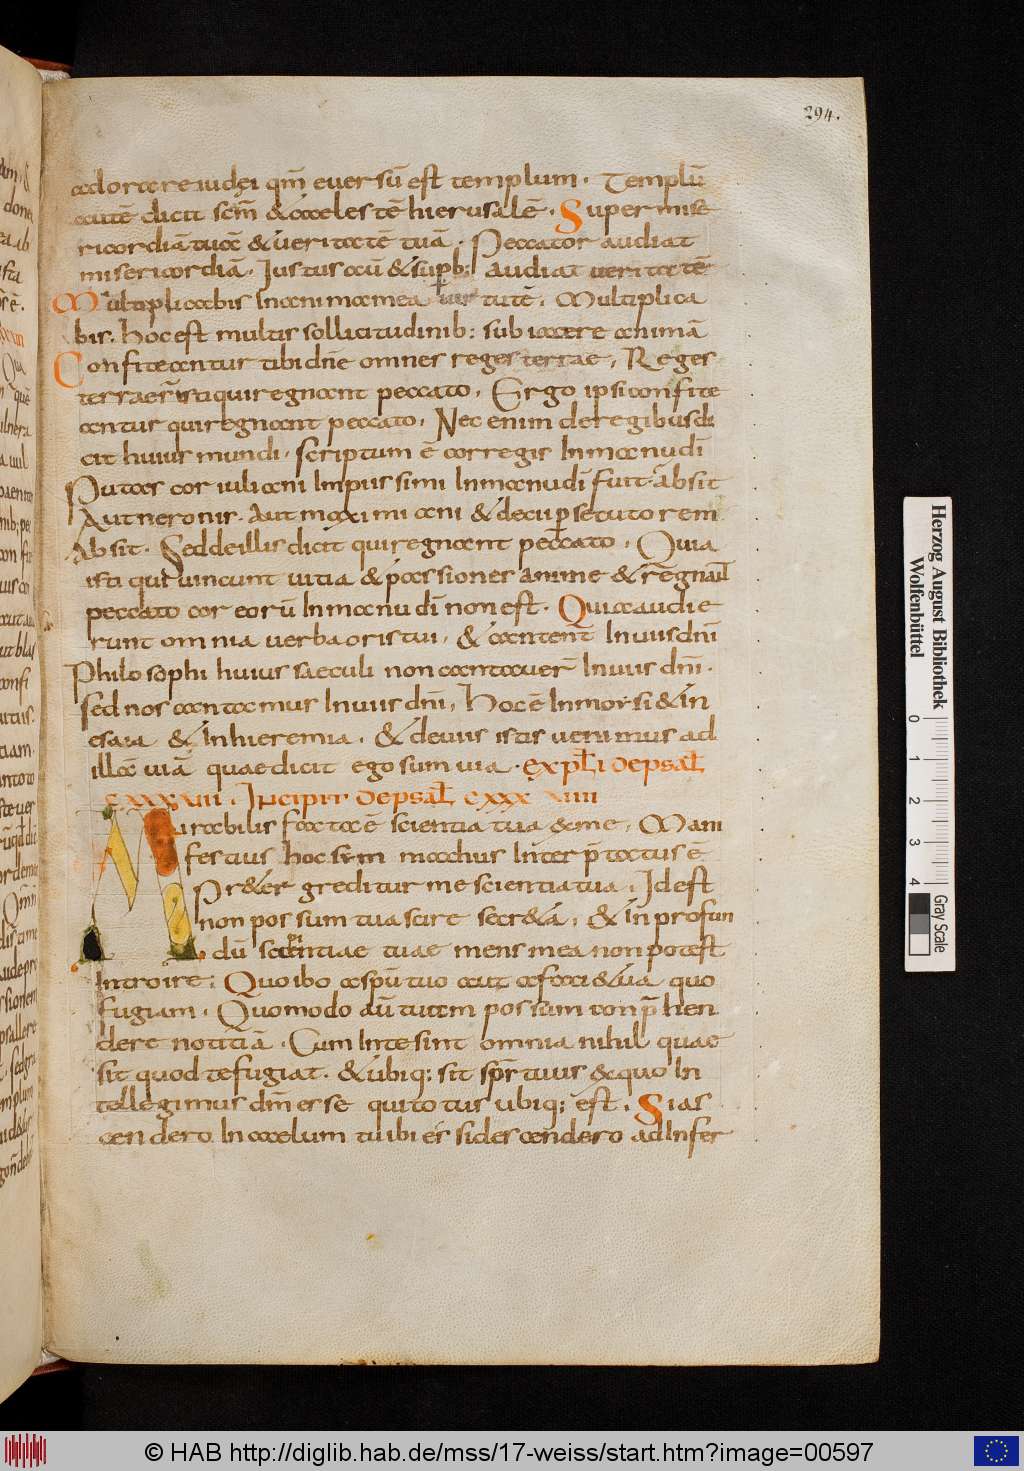 294.
adorare iudęi qm̄ euersū est templum. Templū
autē dicit scm̄ & caelestē hierusalē. Super mise
ricordiā tuā & ueritatē tuā. Peccator audiat
misericordiā. Iustus aū & supb; audiat ueritatē
Multiplicabis In anima mea uirtutē. Multiplica
bis. hoc est multis sollicitudinib; subiacere animā
Confiteantur tibi dn̄e omnes reges terrae. Reges
terrae isti qui regnant peccato. Ergo ipsi confite
antur qui regnant peccato. Nec enim de regibus di
cit huius mundi. scriptum ē cor regis In manu dī
Putas cor iuliani Impiissimi In manu dī fuit absit
Aut neronis. Aut maximiani & decii psecutorem
Absit. Sed de illis dicit qui regnant peccato. Quia
isti qui uincunt uitia & passiones anime & regnant
peccato cor eorū In manu dī non est. Quia audie
runt omnia uerba oris tui. & cantent In uiis dn̄i
Philosophi huius saeculi non cantauer̄ In uiis dn̄i.
sed nos cantamus In uiis dn̄i. Hoc ē In morsi & in
esaia & In hieremia. & de uiis istis uenimus ad
illā uiā quae dicit ego sum uia. expl̄i de psal̄
cxxxuii. Incipit de psal̄ cxxxuiii
Mirabilis facta ē scientia tua a me. Mani
festius hoc symmachus Inter p̄tatus ē
Pr&er greditur me scientia tua. Id est
non possum tua scire secr&a. & in profun
dū scientiae tuae mens mea non potest
Introire: Quo ibo a spū tuo aut a facie tua quo
fugiam. Quomodo aū tuam possum conp̄hen
dere notitiā. Cum In te sint omnia nihil quae
sit quod te fugiat. & ubiq; sit spr̄ tuus & quo In
tellegimus dm̄ esse qui totus ubiq; est. Si as
cendero In caelum tu ibi es si descendero ad Infer
Herzog August Bibliothek
Wolfenbüttel
0 1 2 3 4
Gray Scale
© HAB http://diglib.hab.de/mss/17-weiss/start.htm?image=00597